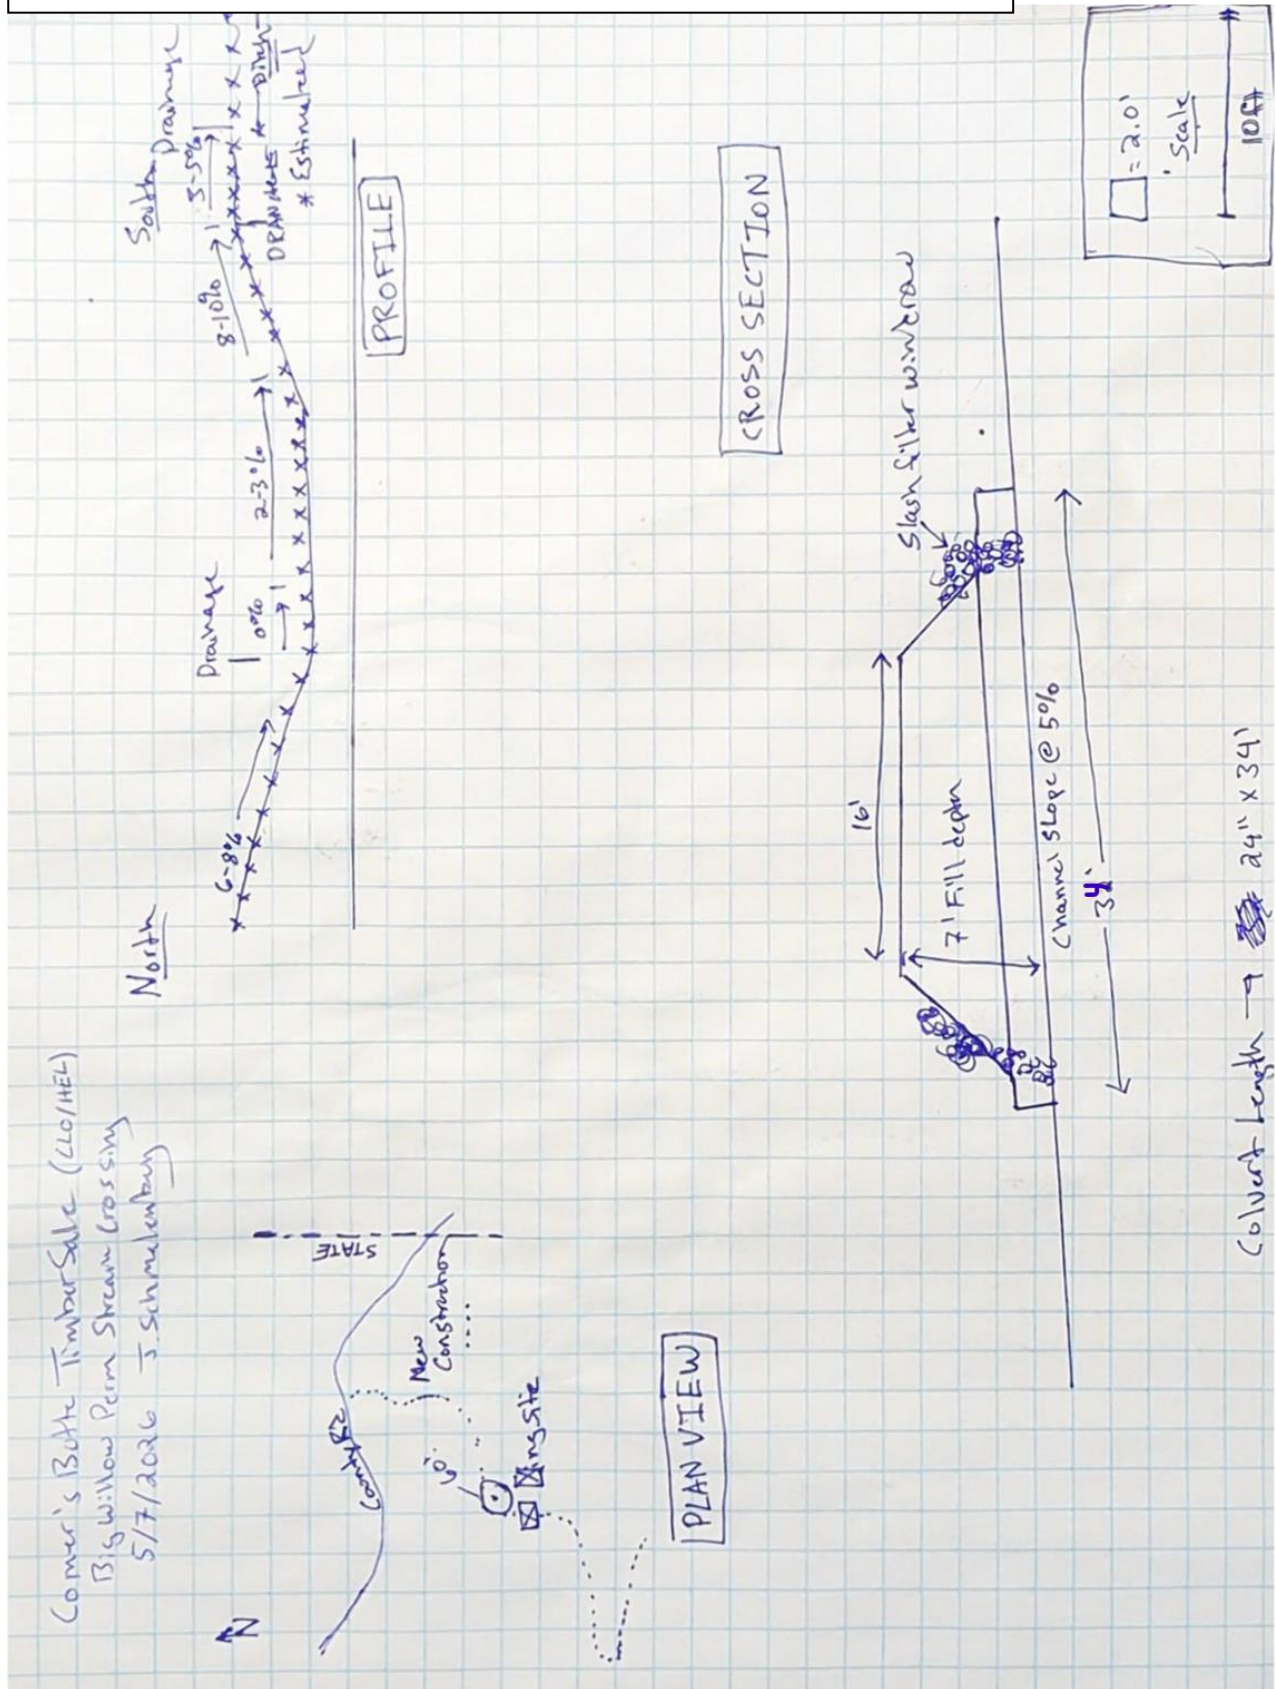 Comer's Butte Timber Sale (CLO/HEL)
Big Willow Perm Stream Crossing
5/7/2026 J. Schmalenburg
N
County Rd
STATE
New
Construction
60'
ing Site
PLAN VIEW
North
South
6-8%
Drainage
0%
2-3%
8-10%
3-5%
Drainage
Ditch
* Estimated
PROFILE
CROSS SECTION
Slash filter windrow
16'
7' Fill depth
Channel Slope @ 5%
34'
Culvert Length → 24" x 34'
= 2.0'
Scale
10ft